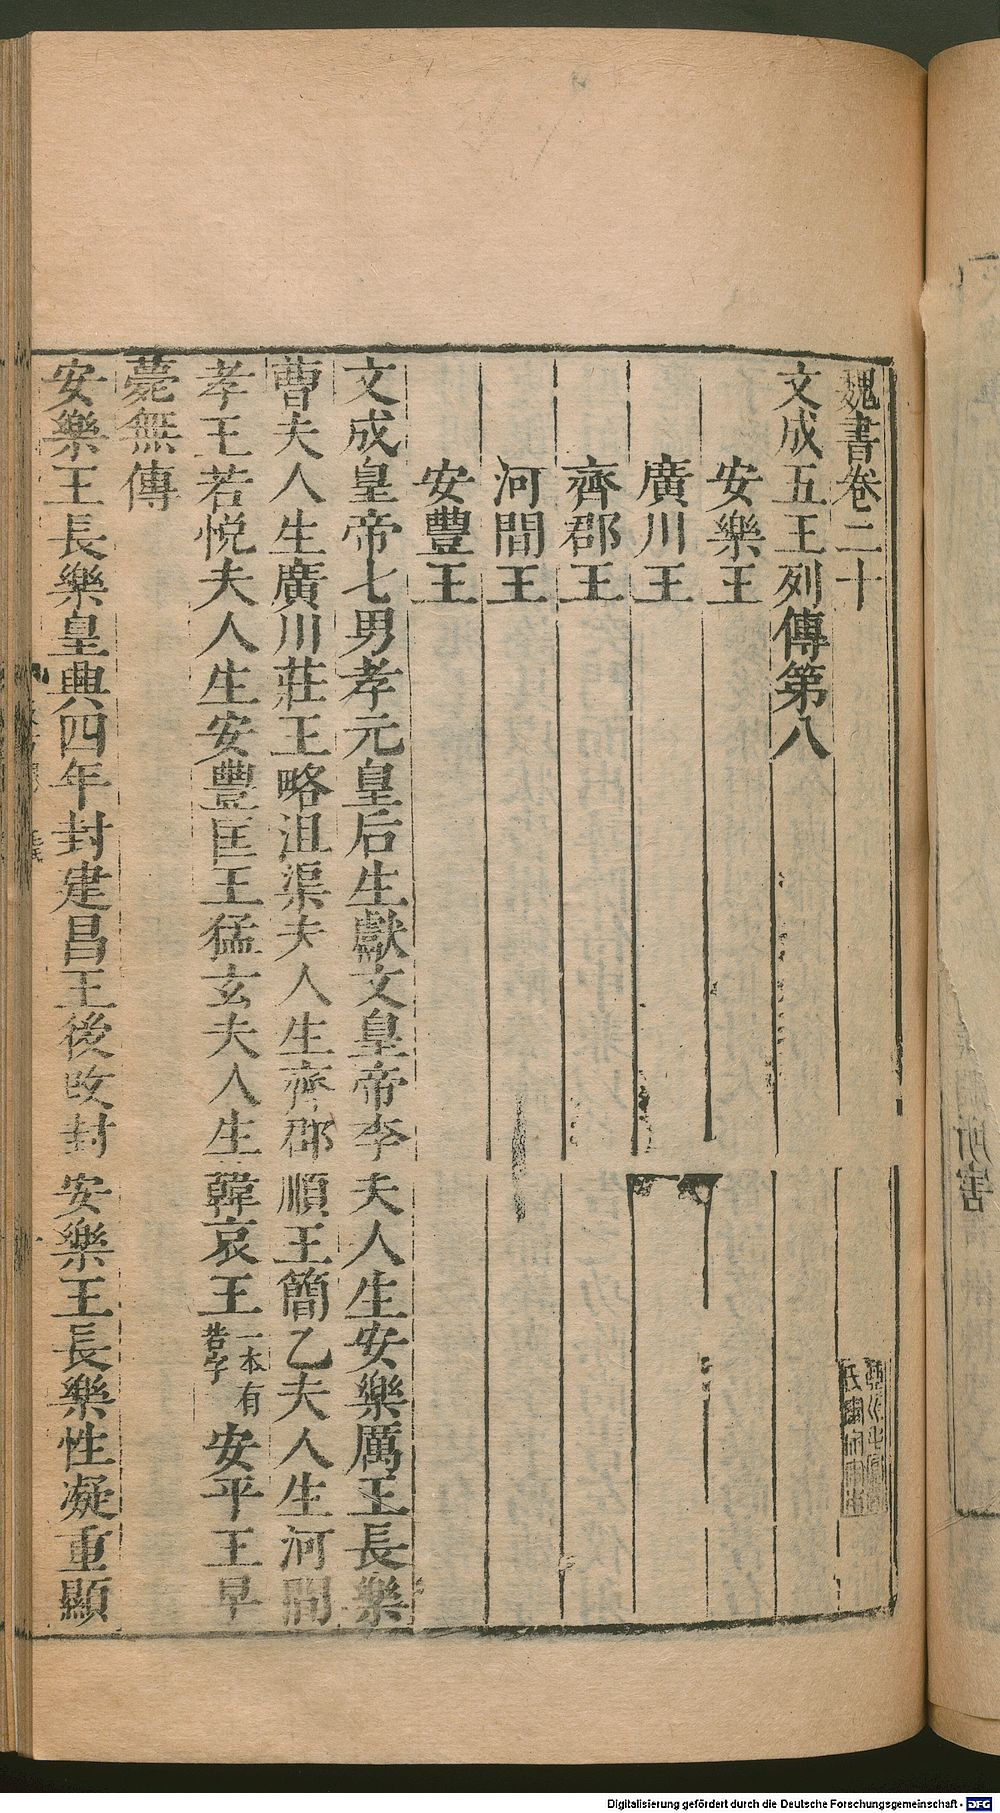 魏書卷二十
文成五王列傳第八
安樂王
廣川王
齊郡王
河間王
安豐王
文成皇帝七男孝元皇后生獻文皇帝李夫人生安樂厲王長樂
曹夫人生廣川莊王略沮渠夫人生齊郡順王簡乙夫人生河間
孝王若悅夫人生安豐匡王猛玄夫人生韓哀王一本有昔字安平王早
薨無傳
安樂王長樂皇興四年封建昌王後改封安樂王長樂性凝重顯
Digitalisierung gefördert durch die Deutsche Forschungsgemeinschaft - DFG